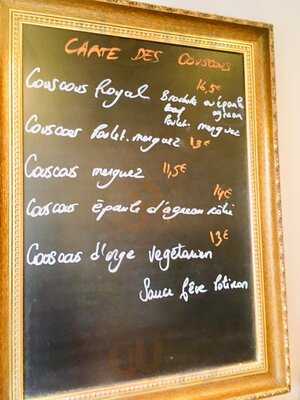 CARTE DES COUSCOUS
Couscous Royal 16,5€
Brochette ou épaule
Boeuf agneau
Poulet. merguez
Couscous Poulet. merguez 13€
Couscous merguez 11,5€
14€
Couscous épaule d'agneau rôtie
13€
Couscous d'orge vegetarien
Sauce fève Potiron